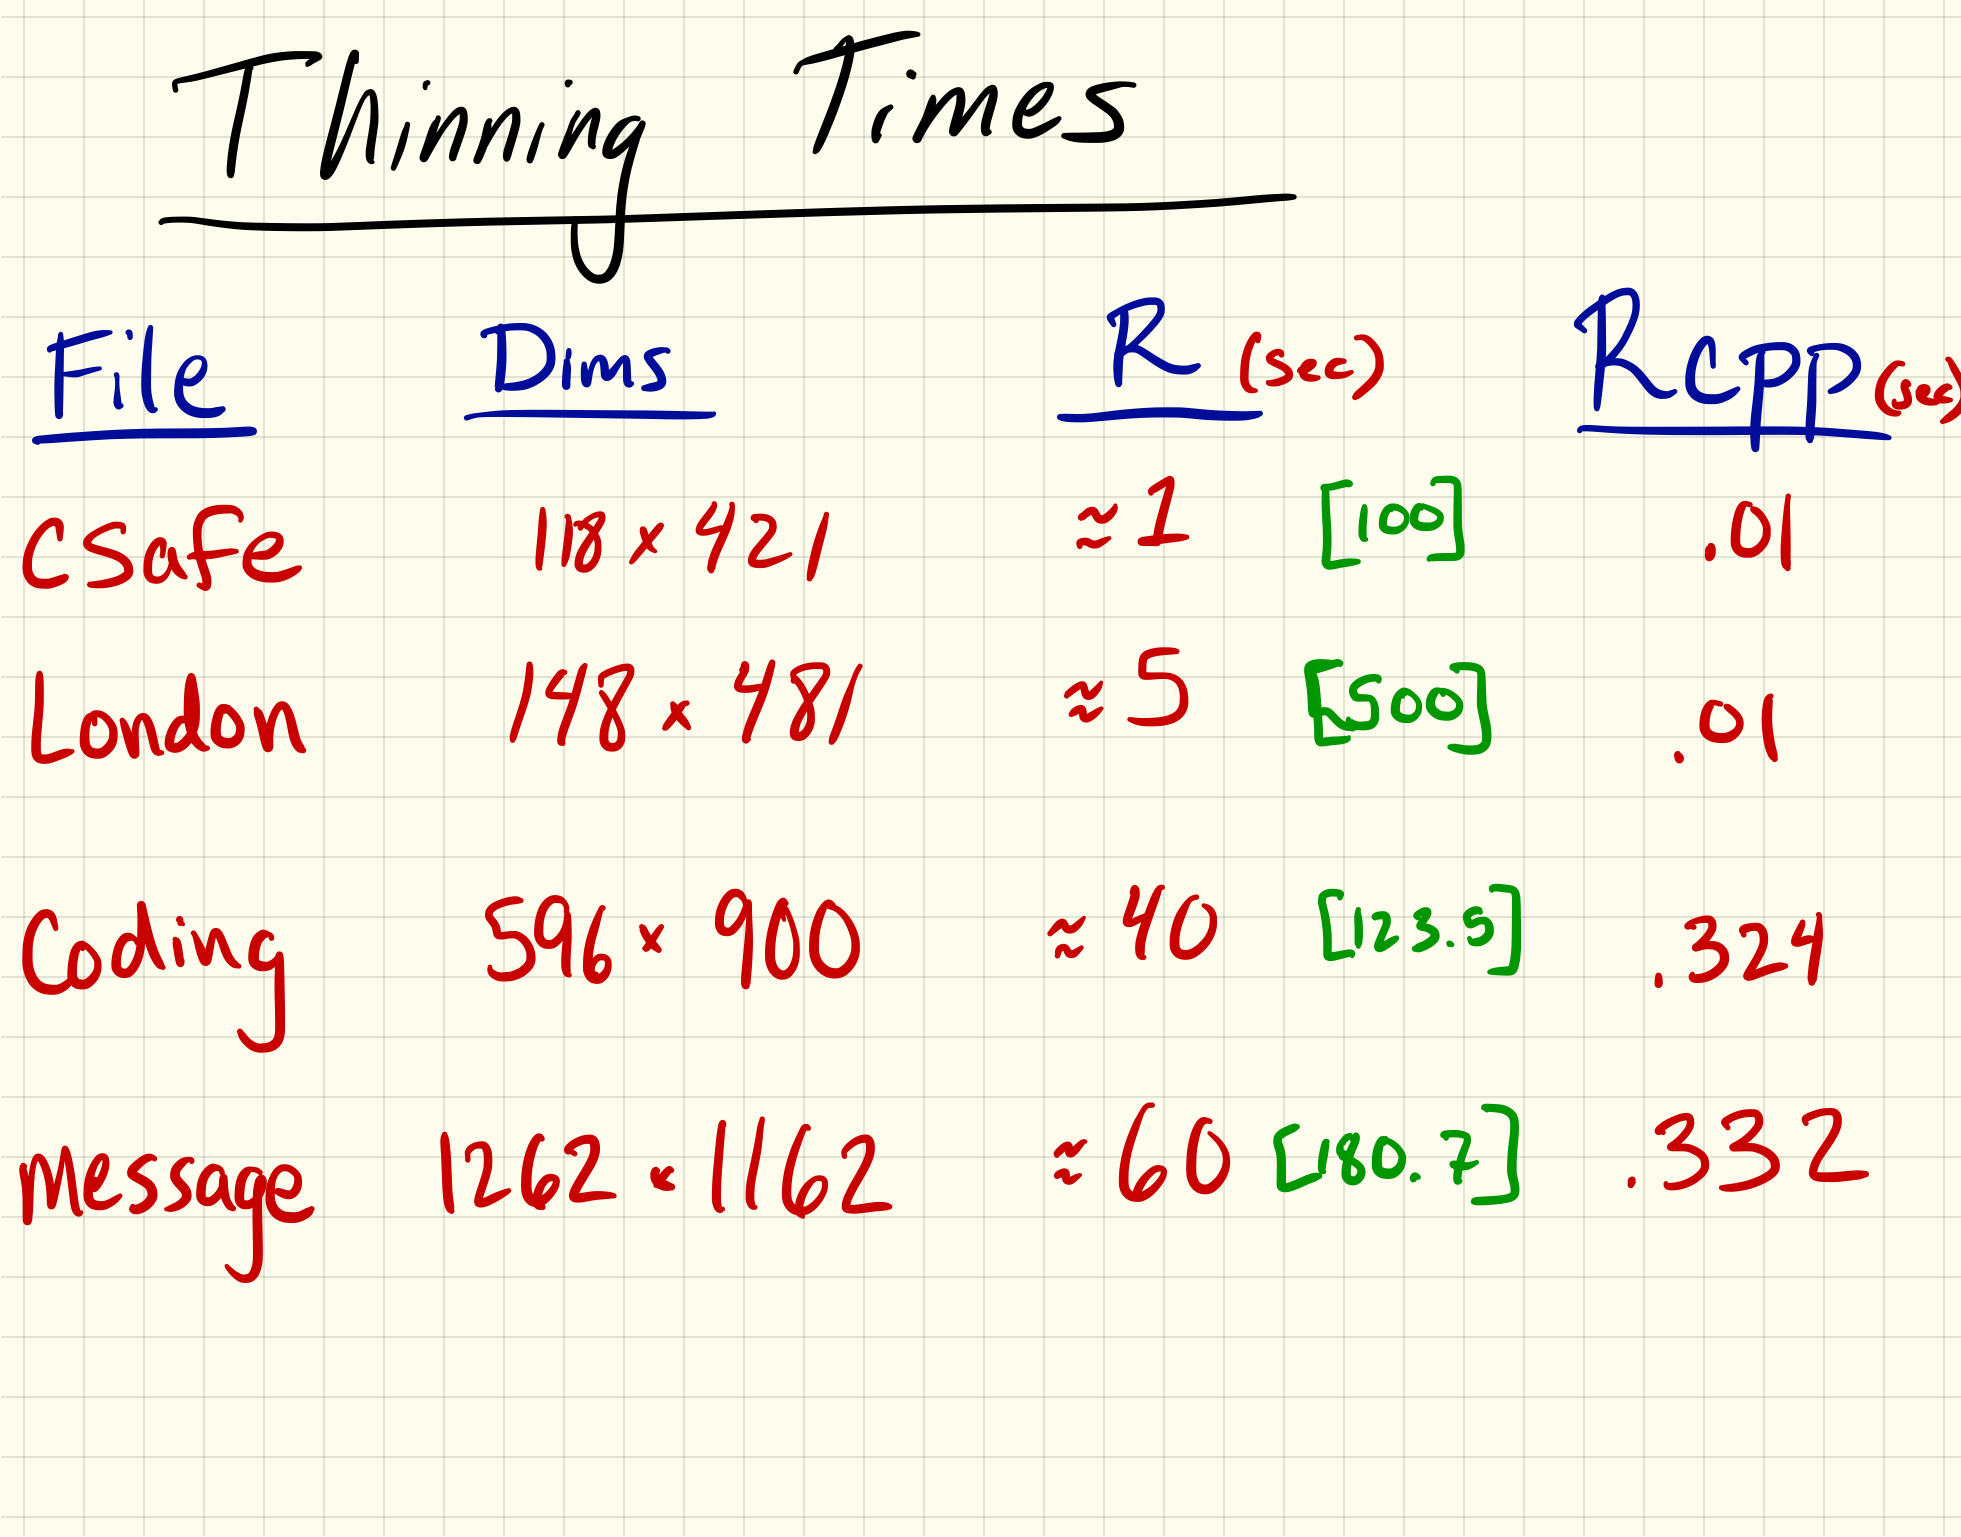 Thinning Times
File Dims R (sec) Rcpp (sec)
CSafe 118 x 421 ≈ 1 [100] .01
London 148 x 481 ≈ 5 [500] .01
Coding 596 x 900 ≈ 40 [123.5] .324
Message 1262 x 1162 ≈ 60 [180.7] .332